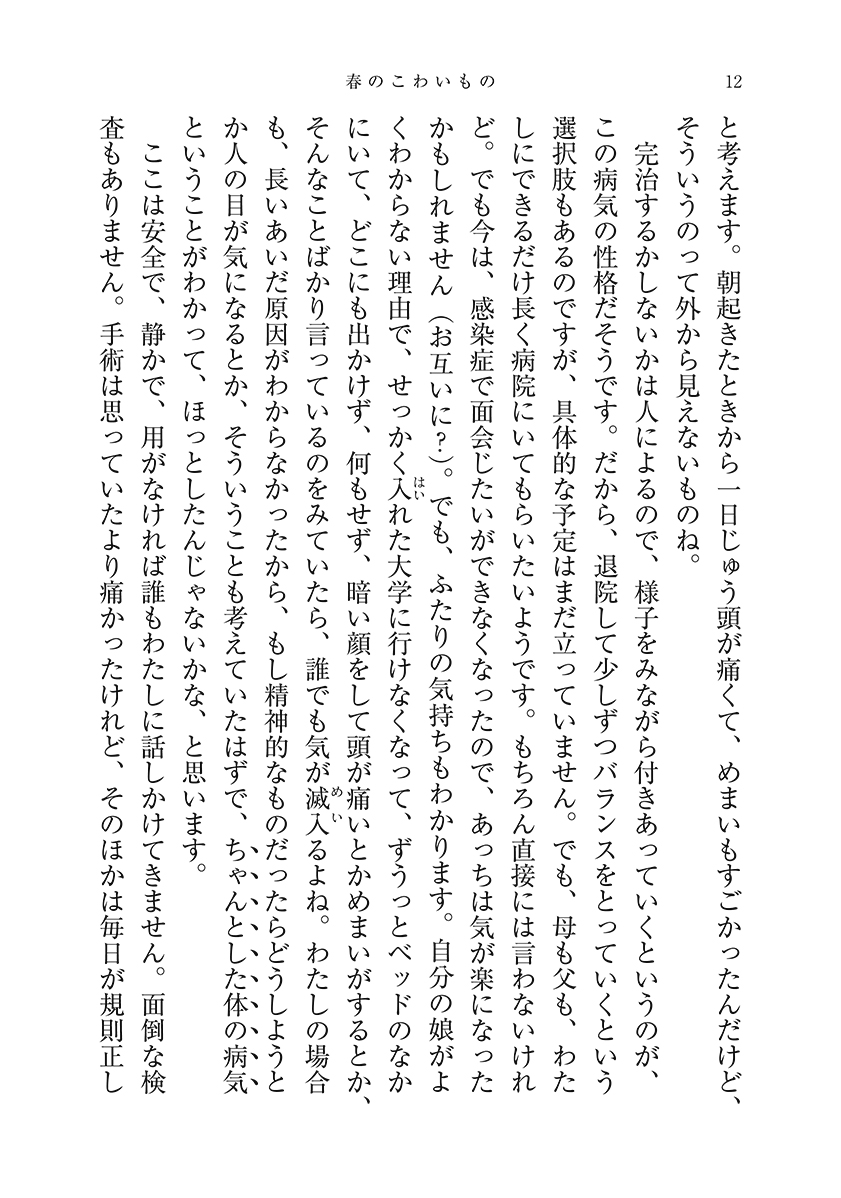 春のこわいもの
12
と考えます。朝起きたときから一日じゅう頭が痛くて、めまいもすごかったんだけど、
そういうのって外から見えないものね。
完治するかしないかは人によるので、様子をみながら付きあっていくというのが、
この病気の性格だそうです。だから、退院して少しずつバランスをとっていくという
選択肢もあるのですが、具体的な予定はまだ立っていません。でも、母も父も、わた
しにできるだけ長く病院にいてもらいたいようです。もちろん直接には言わないけれ
ど。でも今は、感染症で面会じたいができなくなったので、あっちは気が楽になった
かもしれません（お互いに？）。でも、ふたりの気持ちもわかります。自分の娘がよ
くわからない理由で、せっかく入れた大学に行けなくなって、ずうっとベッドのなか
はい
にいて、どこにも出かけず、何もせず、暗い顔をして頭が痛いとかめまいがするとか、
そんなことばかり言っているのをみていたら、誰でも気が滅入るよね。わたしの場合
めい
も、長いあいだ原因がわからなかったから、もし精神的なものだったらどうしようと
か人の目が気になるとか、そういうことも考えていたはずで、ちゃんとした体の病気
ということがわかって、ほっとしたんじゃないかな、と思います。
ここは安全で、静かで、用がなければ誰もわたしに話しかけてきません。面倒な検
査もありません。手術は思っていたより痛かったけれど、そのほかは毎日が規則正し